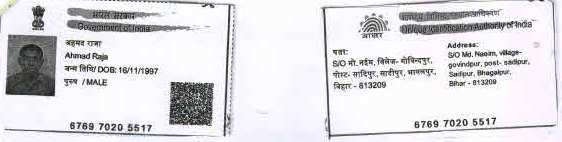 भारत सरकार
Government of India
अहमद राजा
Ahmad Raja
जन्म तिथि/ DOB: 16/11/1997
पुरुष / MALE
6769 7020 5517
आधार
Unique Identification Authority of India
पता:
S/O मो. नईम, विलेज- गोविन्दपुर,
पोस्ट- सादिपुर, सादीपुर, भागलपुर,
बिहार - 813209
Address:
S/O Md. Naeim, village-
govindpur, post- sadipur,
Sadipur, Bhagalpur,
Bihar - 813209
6769 7020 5517